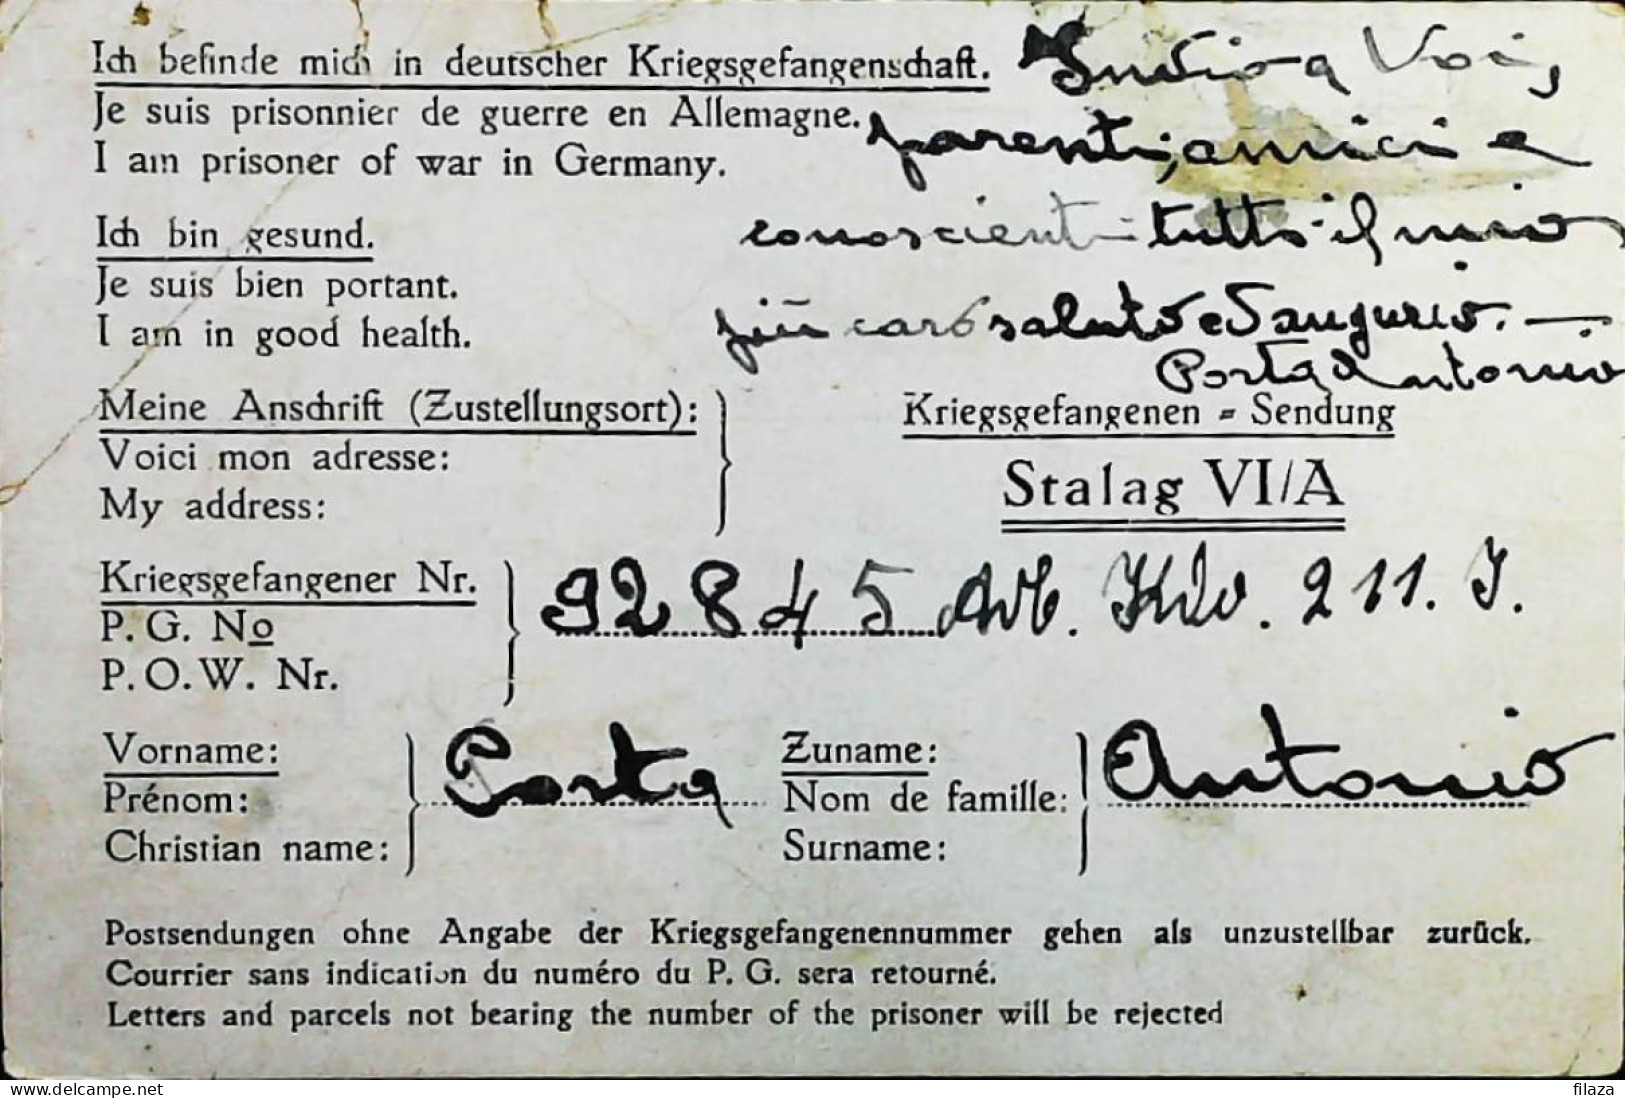 Ich befinde mich in deutscher Kriegsgefangenschaft.
Je suis prisonnier de guerre en Allemagne.
I am prisoner of war in Germany.
Invio a Voi,
parenti, amici e
conoscenti tutto il mio
più caro saluto e d'augurio. —
Porta Antonio
Ich bin gesund.
Je suis bien portant.
I am in good health.
Meine Anschrift (Zustellungsort):
Voici mon adresse:
My address:
Kriegsgefangenen = Sendung
Stalag VI/A
Kriegsgefangener Nr.
P. G. No
P. O. W. Nr.
92845 Arb. Kdo. 211. J.
Vorname:
Prénom:
Christian name:
Porta
Zuname:
Nom de famille:
Surname:
Antonio
Postsendungen ohne Angabe der Kriegsgefangenennummer gehen als unzustellbar zurück.
Courrier sans indication du numéro du P. G. sera retourné.
Letters and parcels not bearing the number of the prisoner will be rejected
www.delcampe.net
filaza